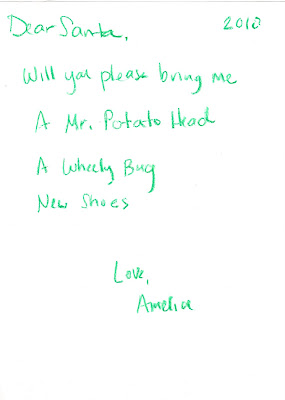 Dear Santa, 2010
Will you please bring me
A Mr. Potato Head
A Wheely Bug
New Shoes
Love,
Amelia